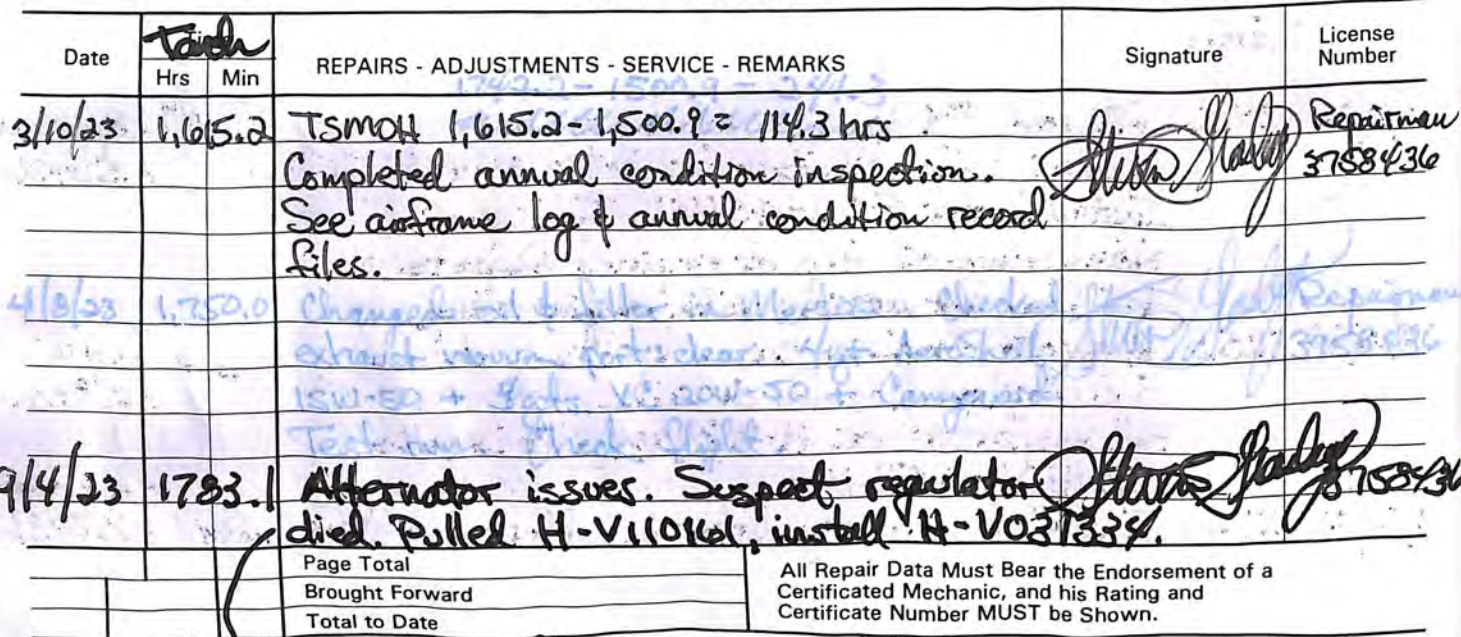 Date Tach Hrs Min REPAIRS - ADJUSTMENTS - SERVICE - REMARKS Signature License Number
1742.2 - 1500.9 = 241.3
3/10/23 1,615.2 TSMOH 1,615.2 - 1,500.9 = 114.3 hrs Repairman
Completed annual condition inspection. 3758436
See airframe log & annual condition record
files.
4/8/23 1,750.0 Changed oil & filter in Checked Repairman
exhaust clear. 4qt Aeroshell
15W-50 + XC 20W-50 + Camguard
Test run. Check flight.
9/4/23 1783.1 Alternator issues. Suspect regulator 3758436
died. Pulled H-V110161, install H-V031334.
Page Total
Brought Forward
Total to Date
All Repair Data Must Bear the Endorsement of a
Certificated Mechanic, and his Rating and
Certificate Number MUST be Shown.